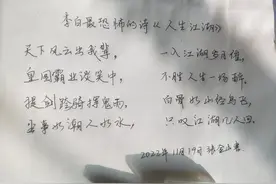 李白最恐怖的诗《人生江湖》
天下风云出我辈， 一入江湖岁月催，
皇图霸业谈笑中， 不胜人生一场醉，
提剑跨骑挥鬼雨， 白骨如山鸟飞，
尘事如潮人如水， 只叹江湖几人回，
2022年11月19日 张金山书